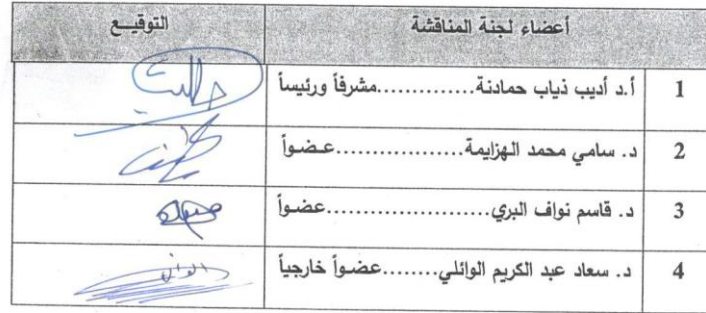 أعضاء لجنة المناقشة التوقيـع
1 أ.د أديب ذياب حمادنة..............مشرفاً ورئيساً
2 د. سامي محمد الهزايمة..................عـضـواً
3 د. قاسم نواف البري.....................عضـواً
4 د. سعاد عبد الكريم الوائلي........عضـواً خارجياً